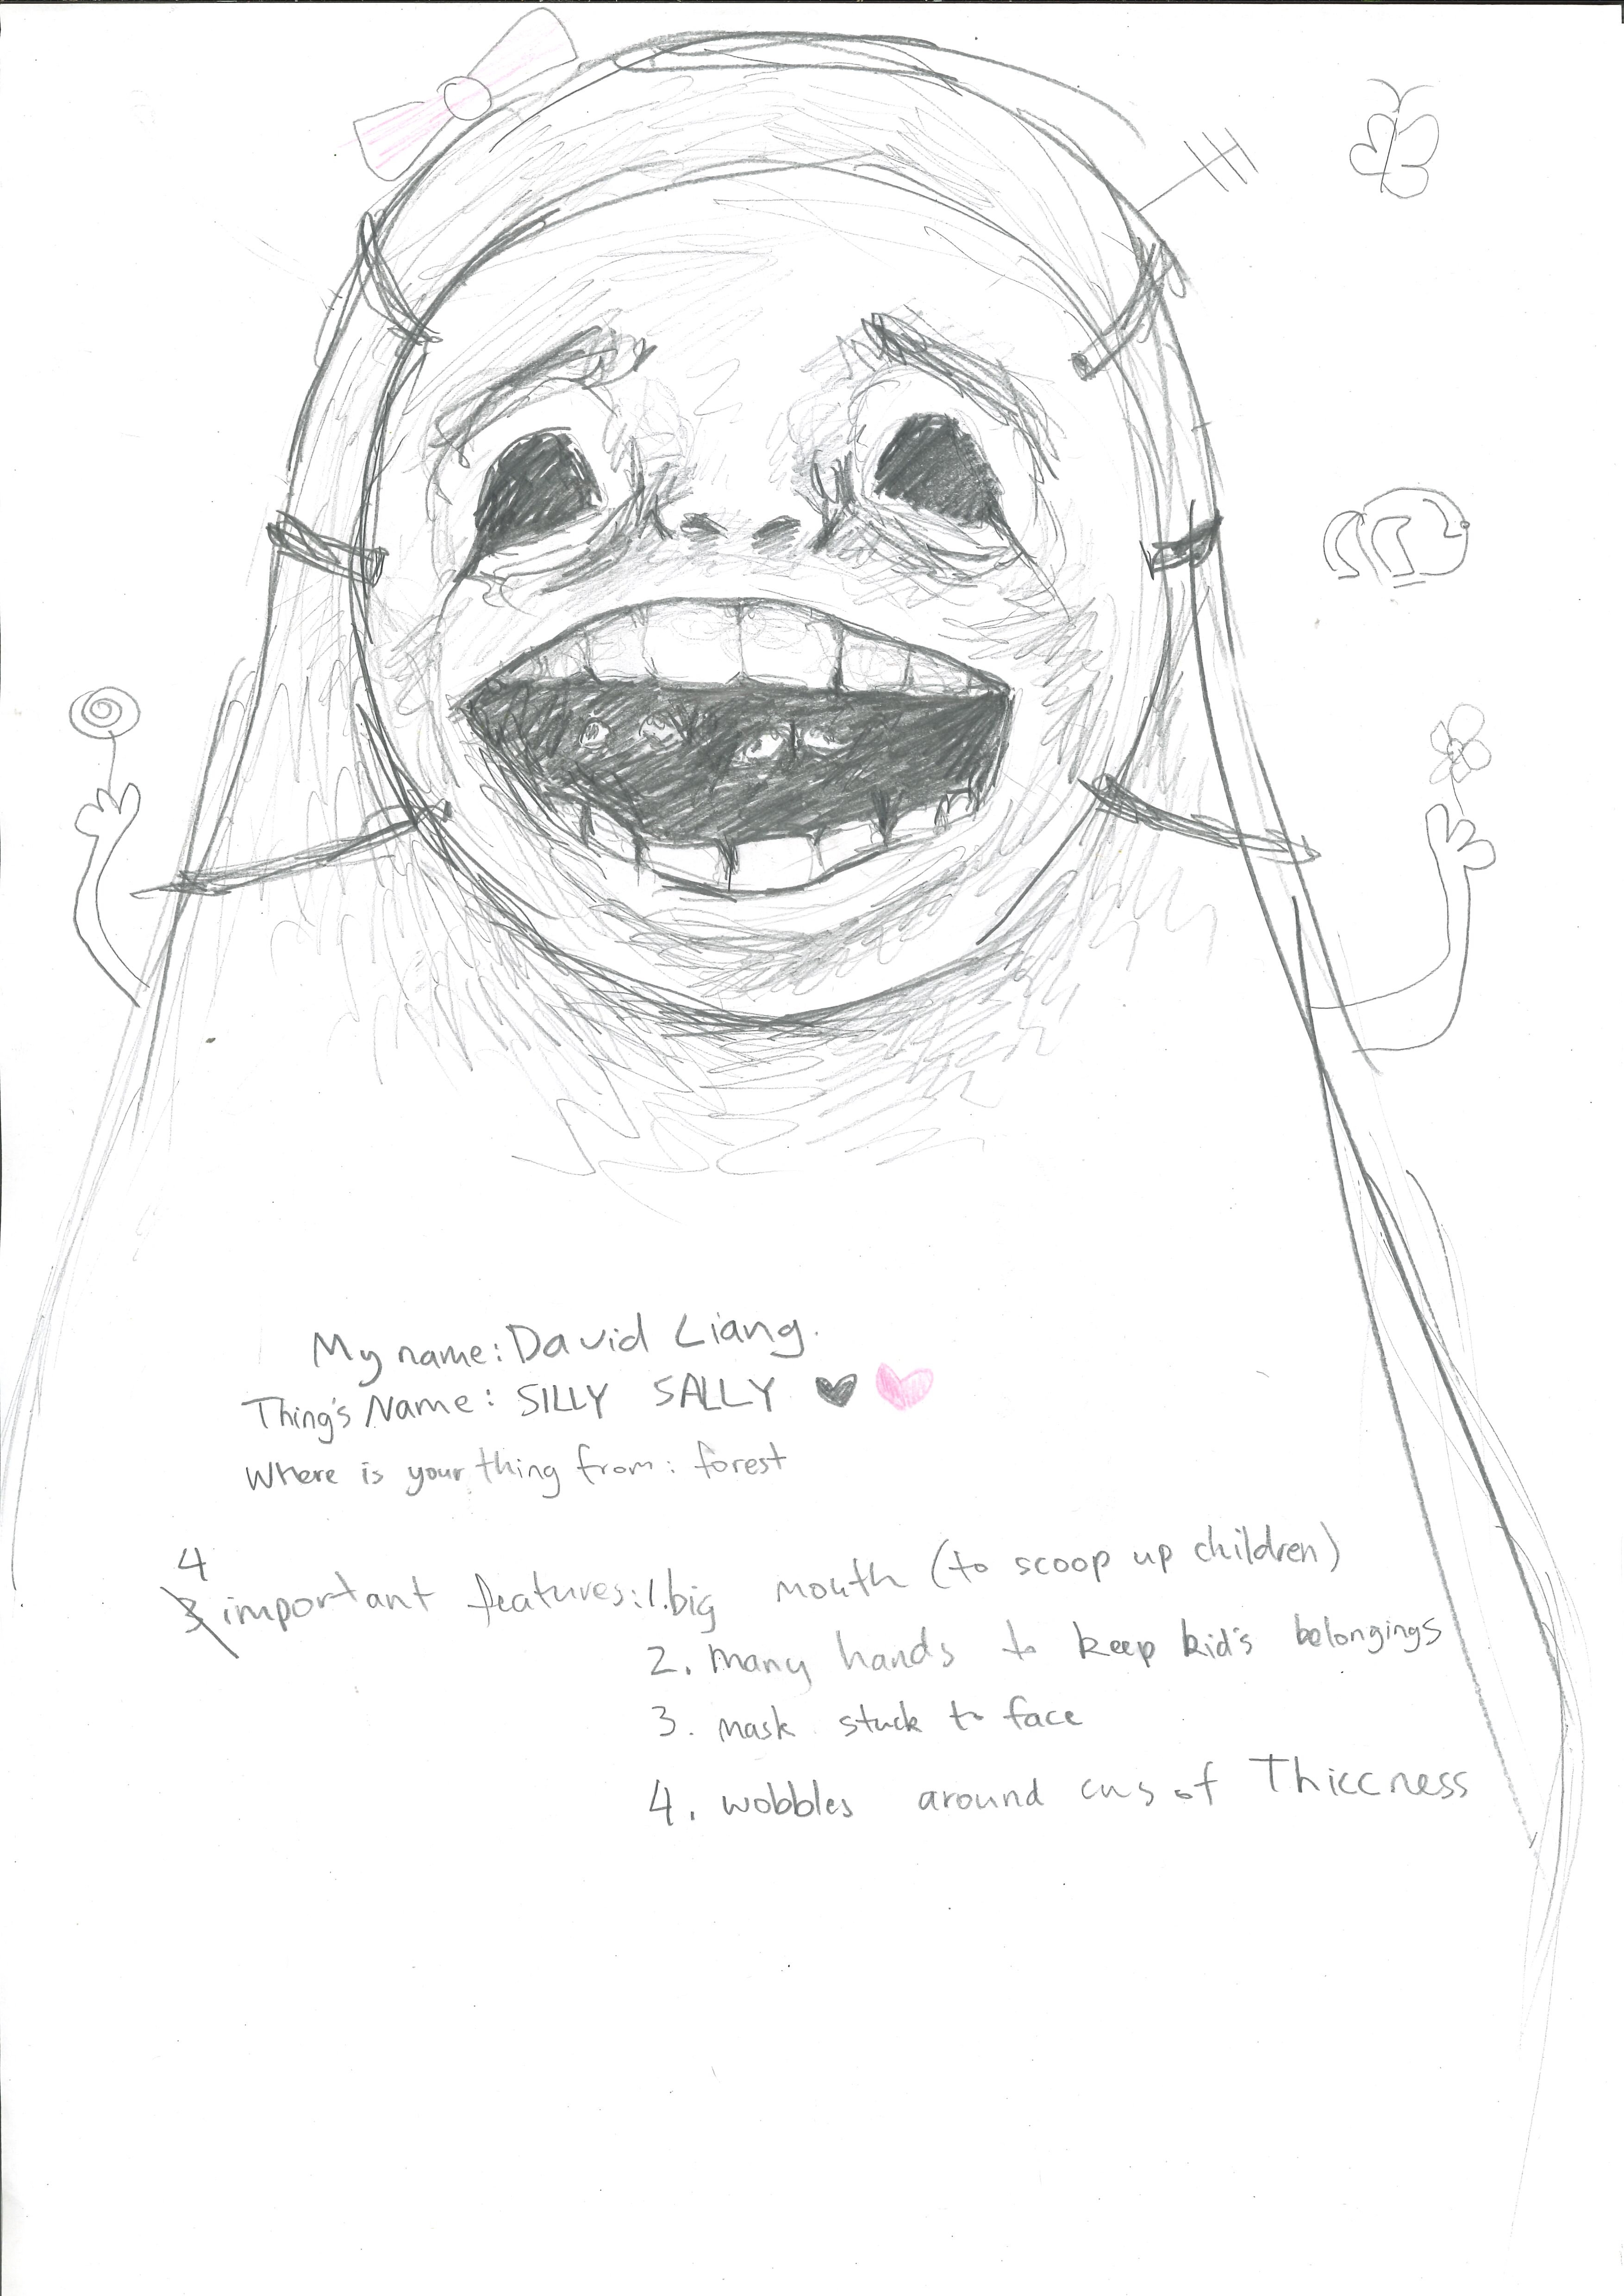 My name: David Liang.
Thing's Name: SILLY SALLY
Where is your thing from: forest
4
3 important features: 1. big mouth (to scoop up children)
2. many hands to keep kid's belongings
3. mask stuck to face
4. wobbles around cus of Thiccness